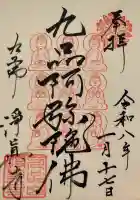 奉拝
令和八年
一月十七日
九品阿弥陀佛
九品山
浄真寺